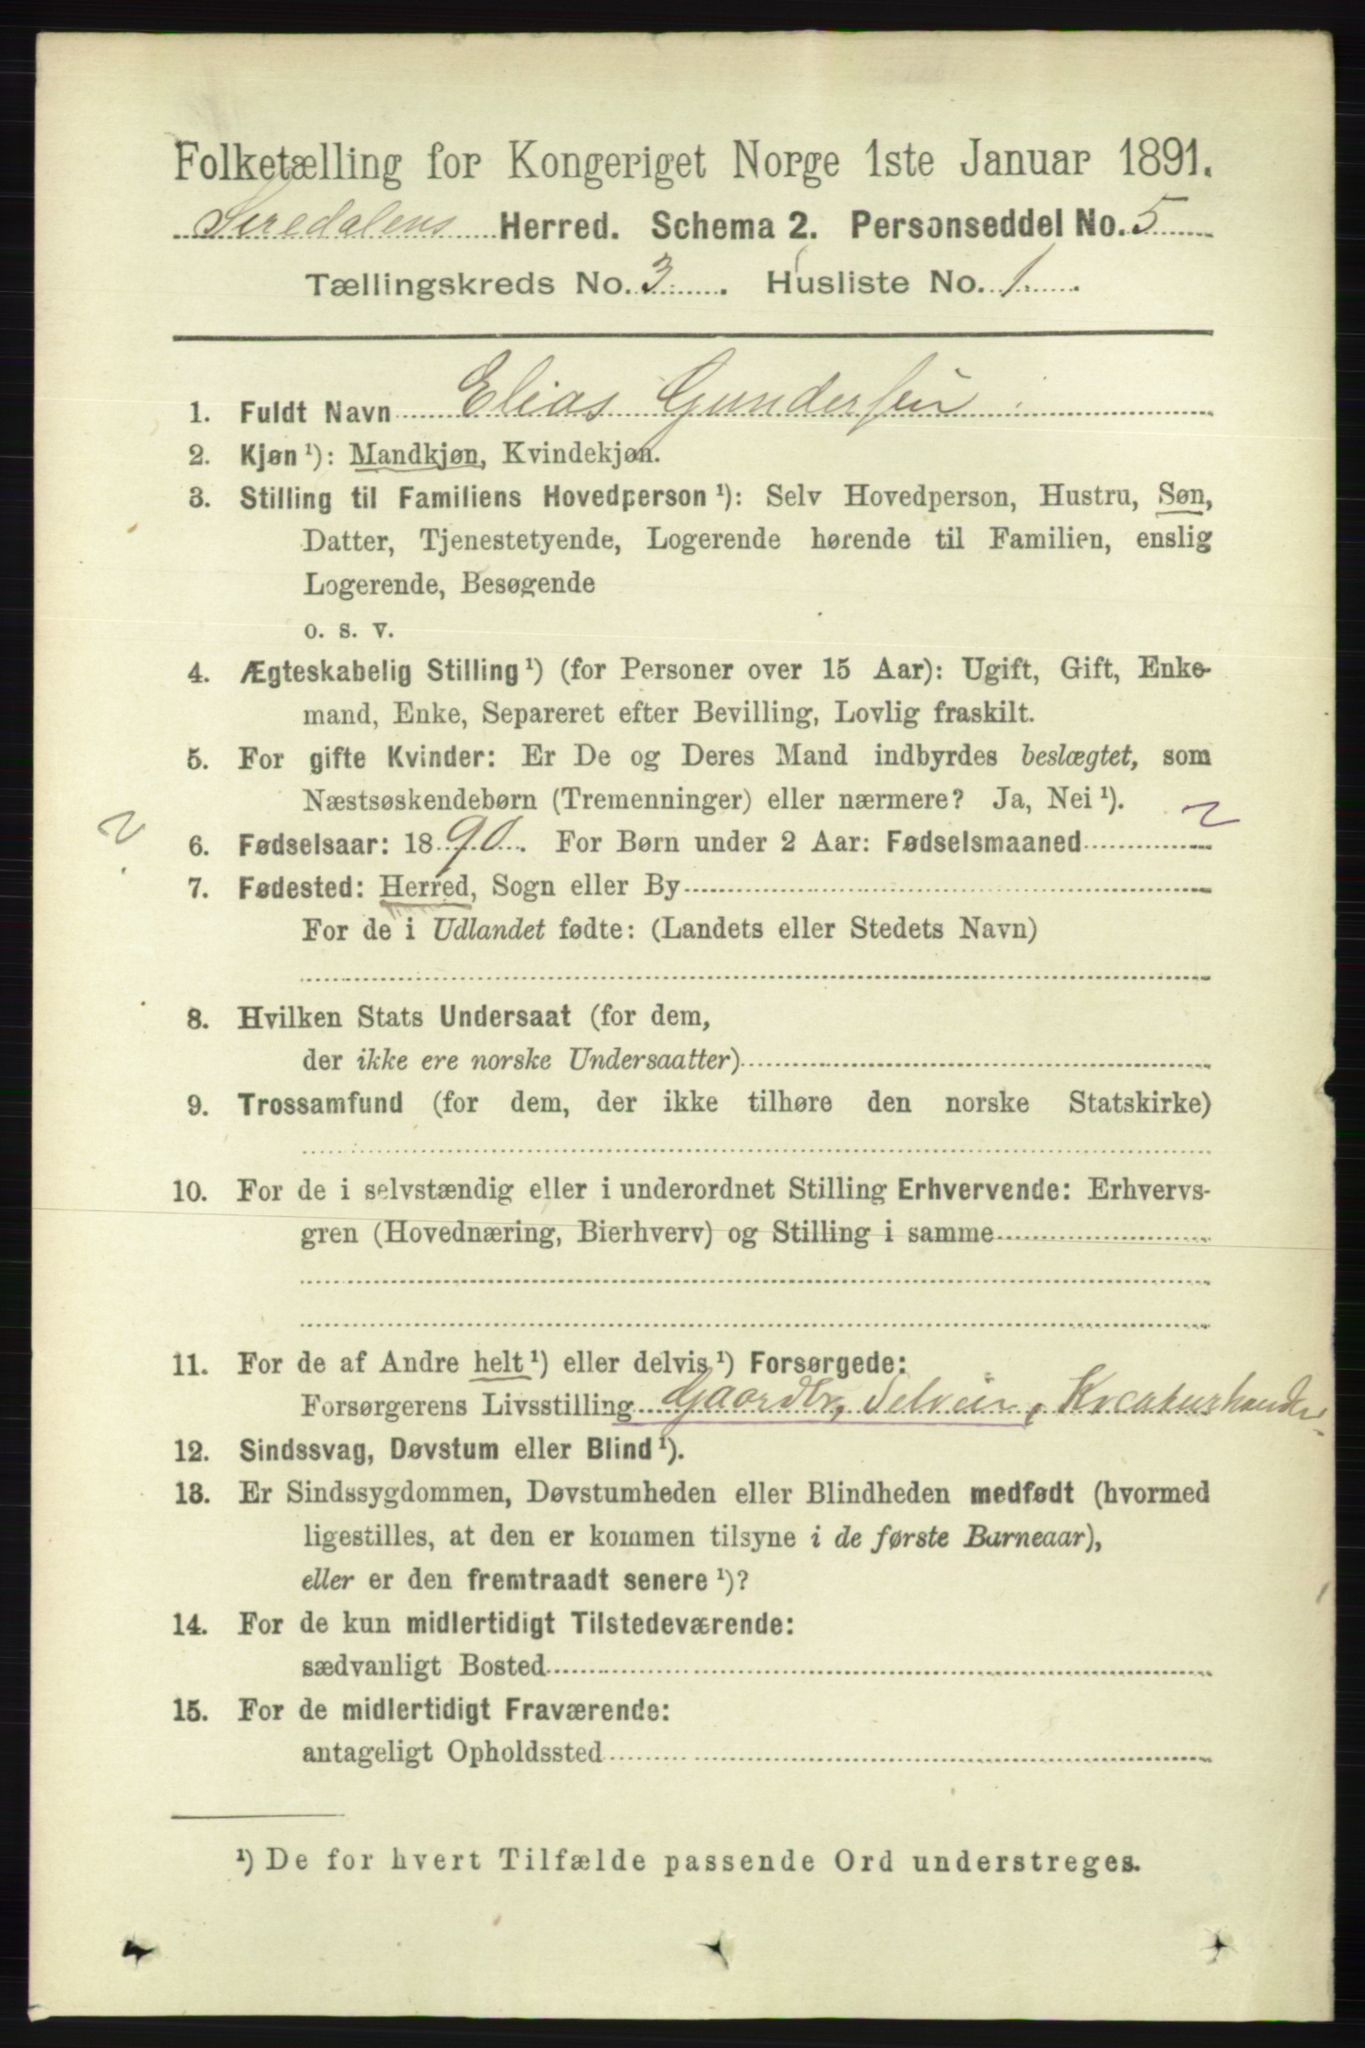 Folketælling for Kongeriget Norge 1ste Januar 1891.
Siredalens Herred. Schema 2. Personseddel No. 5
Tællingskreds No. 3. Husliste No. 1
1. Fuldt Navn Elias Gundersen
2. Kjøn ¹): Mandkjøn, Kvindekjøn.
3. Stilling til Familiens Hovedperson ¹): Selv Hovedperson, Hustru, Søn,
Datter, Tjenestetyende, Logerende hørende til Familien, enslig
Logerende, Besøgende
o. s. v.
4. Ægteskabelig Stilling ¹) (for Personer over 15 Aar): Ugift, Gift, Enke-
mand, Enke, Separeret efter Bevilling, Lovlig fraskilt.
5. For gifte Kvinder: Er De og Deres Mand indbyrdes beslægtet, som
Næstsøskendebørn (Tremenninger) eller nærmere? Ja, Nei ¹).
6. Fødselsaar: 1890. For Børn under 2 Aar: Fødselsmaaned
7. Fødested: Herred, Sogn eller By
For de i Udlandet fødte: (Landets eller Stedets Navn)
8. Hvilken Stats Undersaat (for dem,
der ikke ere norske Undersaatter)
9. Trossamfund (for dem, der ikke tilhøre den norske Statskirke)
10. For de i selvstændig eller i underordnet Stilling Erhvervende: Erhvervs-
gren (Hovednæring, Bierhverv) og Stilling i samme
11. For de af Andre helt ¹) eller delvis ¹) Forsørgede:
Forsørgerens Livsstilling Gaardbr, Selveier, Kreaturhandler
12. Sindssvag, Døvstum eller Blind ¹).
13. Er Sindssygdommen, Døvstumheden eller Blindheden medfødt (hvormed
ligestilles, at den er kommen tilsyne i de første Barneaar),
eller er den fremtraadt senere ¹)?
14. For de kun midlertidigt Tilstedeværende:
sædvanligt Bosted
15. For de midlertidigt Fraværende:
antageligt Opholdssted
¹) De for hvert Tilfælde passende Ord understreges.